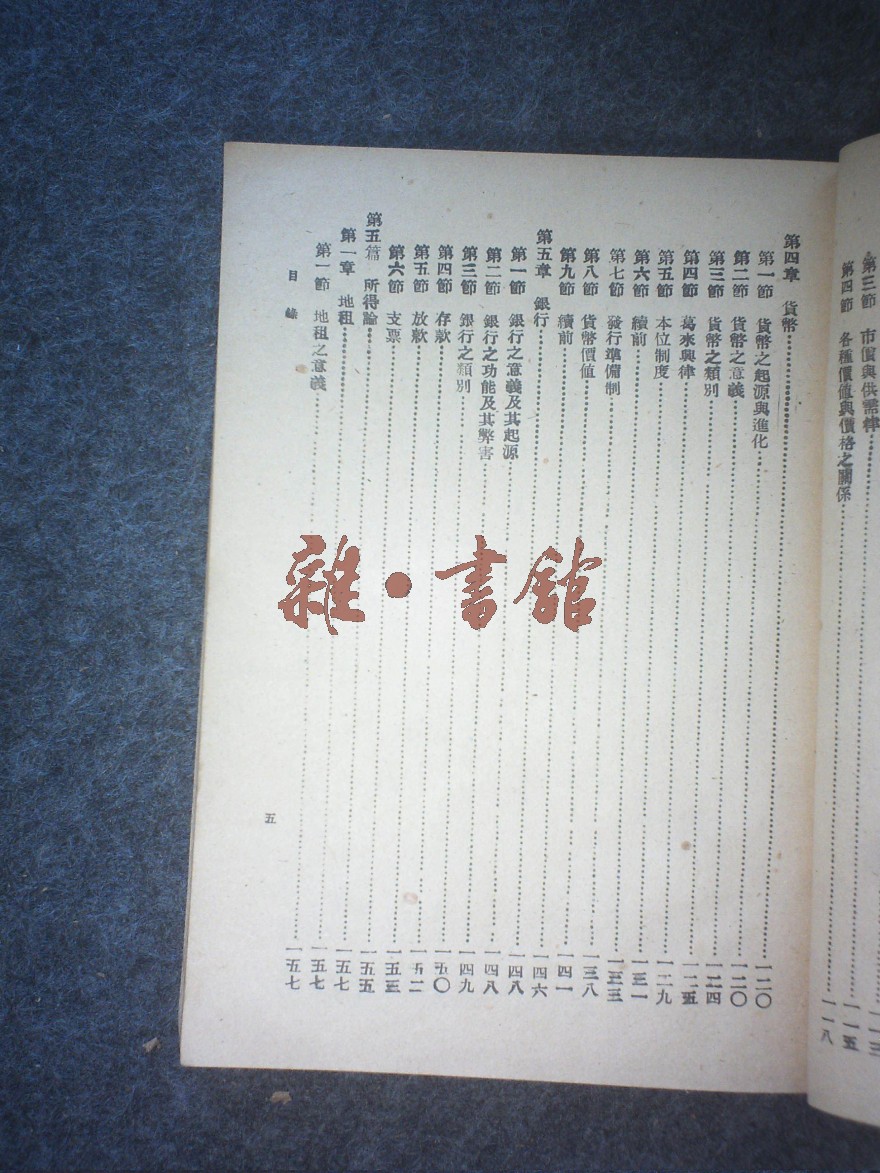 一一三
第三節 市價與供需律……一一五
第四節 各種價值與價格之關係……一一八
第四章 貨幣……一二〇
第一節 貨幣之起源與進化……一二〇
第二節 貨幣之意義……一二四
第三節 貨幣之類別……一二五
第四節 葛來興律……一二九
第五節 本位制度……一三一
第六節 續前……一三三
第七節 發行準備制……一三八
第八節 貨幣價值……一四一
第九節 續前……一四六
第五章 銀行……一四八
第一節 銀行之意義及其起源……一四八
第二節 銀行之功能及其弊害……一四九
第三節 銀行之類別……一五〇
第四節 存款……一五二
第五節 放款……一五三
第六節 支票……一五五
第五篇 所得論……一五七
第一章 地租……一五七
第一節 地租之意義……一五七
目錄
五
雜·書館